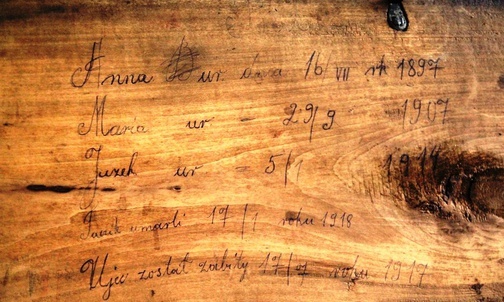 Anna D ur dnia 16/VII rk 1897
Maria ur - 29/9 - 1907
Juzek ur = 5/1 1914
Juzek umarli 17/1 roku 1918
Ujec został zabity 17/7 roku 1917